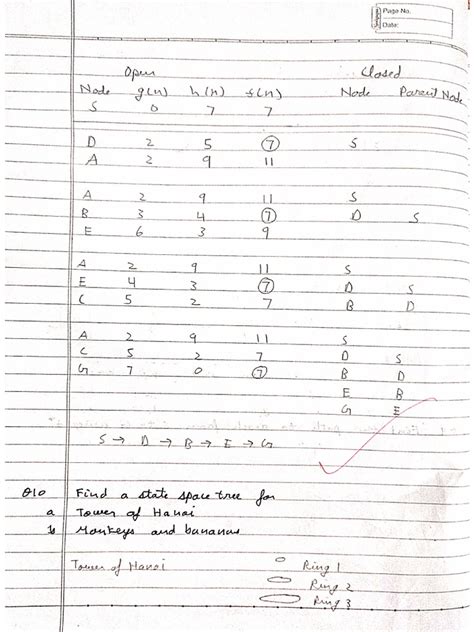 Page No.
Date:
Open Closed
Node g(n) h(n) f(n) Node Parent Node
S 0 7 7
D 2 5 7 S
A 2 9 11
A 2 9 11 S
B 3 4 7 D S
E 6 3 9
A 2 9 11 S
E 4 3 7 D S
C 5 2 7 B D
A 2 9 11 S
C 5 2 7 D S
G 7 0 7 B D
E B
G E
S → D → B → E → G
Q10 Find a state space tree for
a Tower of Hanoi
b Monkeys and bananas
Tower of Hanoi Ring 1
Ring 2
Ring 3